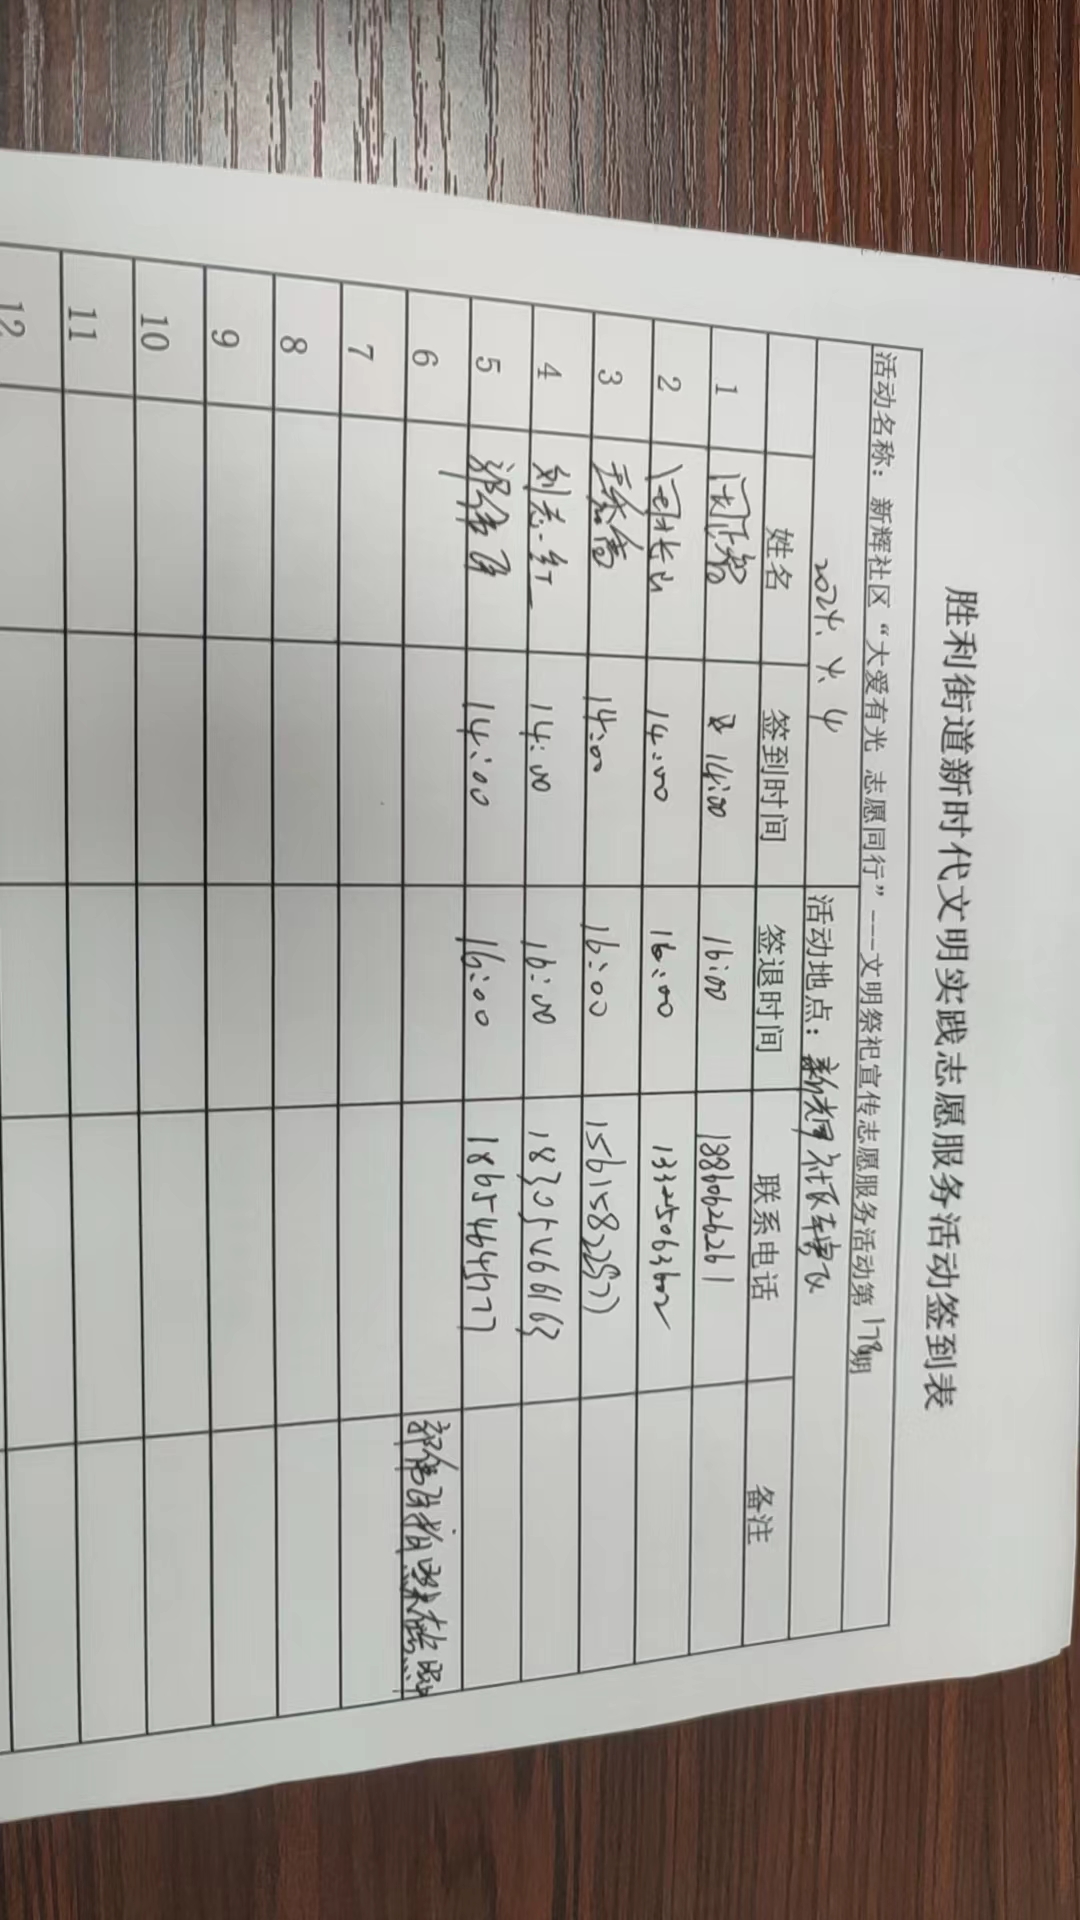 胜利街道新时代文明实践志愿服务活动签到表
活动名称：新辉社区“大爱有光 志愿同行”---文明祭祀宣传志愿服务活动第178期
2024.4.4 活动地点：新辉社区
姓名 签到时间 签退时间 联系电话 备注
1 14:00 16:00 18860626261
2 14:00 16:00 13325063602
3 14:00 16:00
4 刘志红 14:00 16:00 18305466163
5 14:00 16:00 18654645777
6
7
8
9
10
11
12